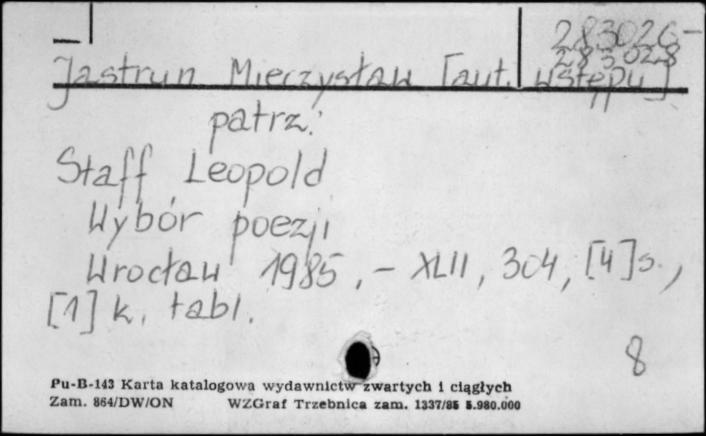 283026-
283028
Jastrun Mieczysław [aut. wstępu]
patrz:
Staff Leopold
Wybór poezji
Wrocław 1985. - XLII, 304, [4] s.,
[1] k. tabl.
8
Pu-B-143 Karta katalogowa wydawnictw zwartych i ciągłych
Zam. 864/DW/ON WZGraf Trzebnica zam. 1337/85 5.980.000